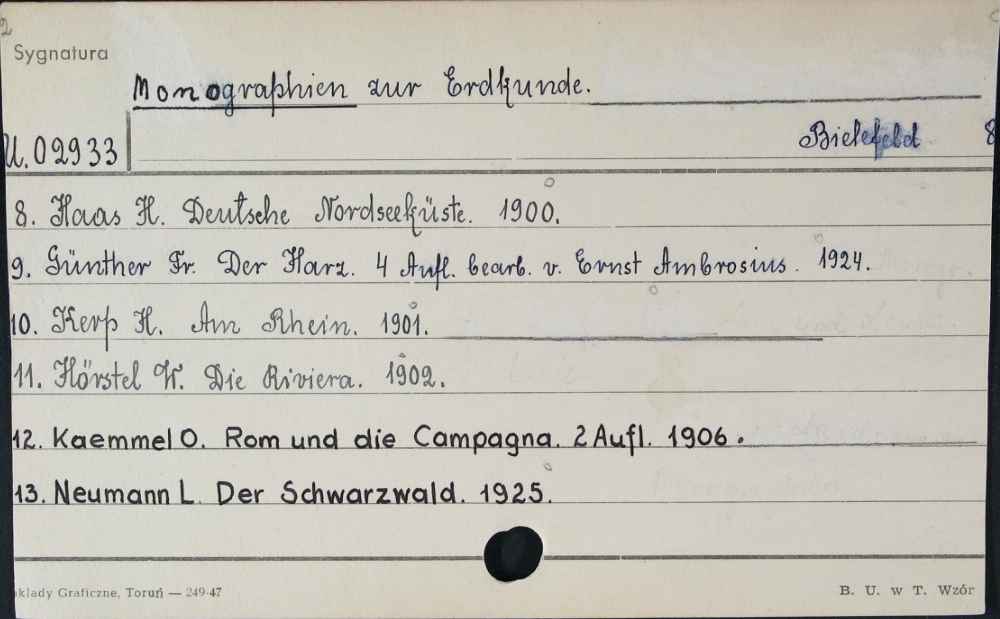 2
Sygnatura
Monographien zur Erdkunde.
U.02933
Bielefeld 8
8. Haas H. Deutsche Nordseeküste. 1900.
9. Günther Fr. Der Harz. 4 Aufl. bearb. v. Ernst Ambrosius. 1924.
10. Kerp H. Am Rhein. 1901.
11. Hörstel W. Die Riviera. 1902.
12. Kaemmel O. Rom und die Campagna. 2 Aufl. 1906.
13. Neumann L. Der Schwarzwald. 1925.
kłady Graficzne, Toruń — 249-47
B. U. w T. Wzór